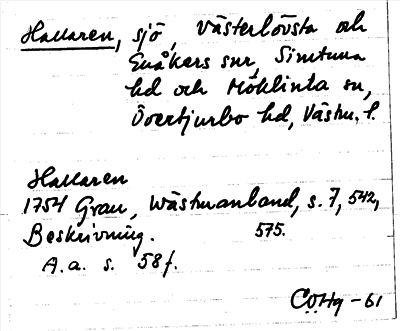 Hallaren, sjö, Västerlövsta och
Enåkers snr, Simtuna
hd och Möklinta sn,
Övertjurbo hd, Västm. l.
Hallaren
1754 Grau, Wästmanland, s. 7, 542,
Beskrivning. 575.
A.a. s. 58 f.
CÖHg -61